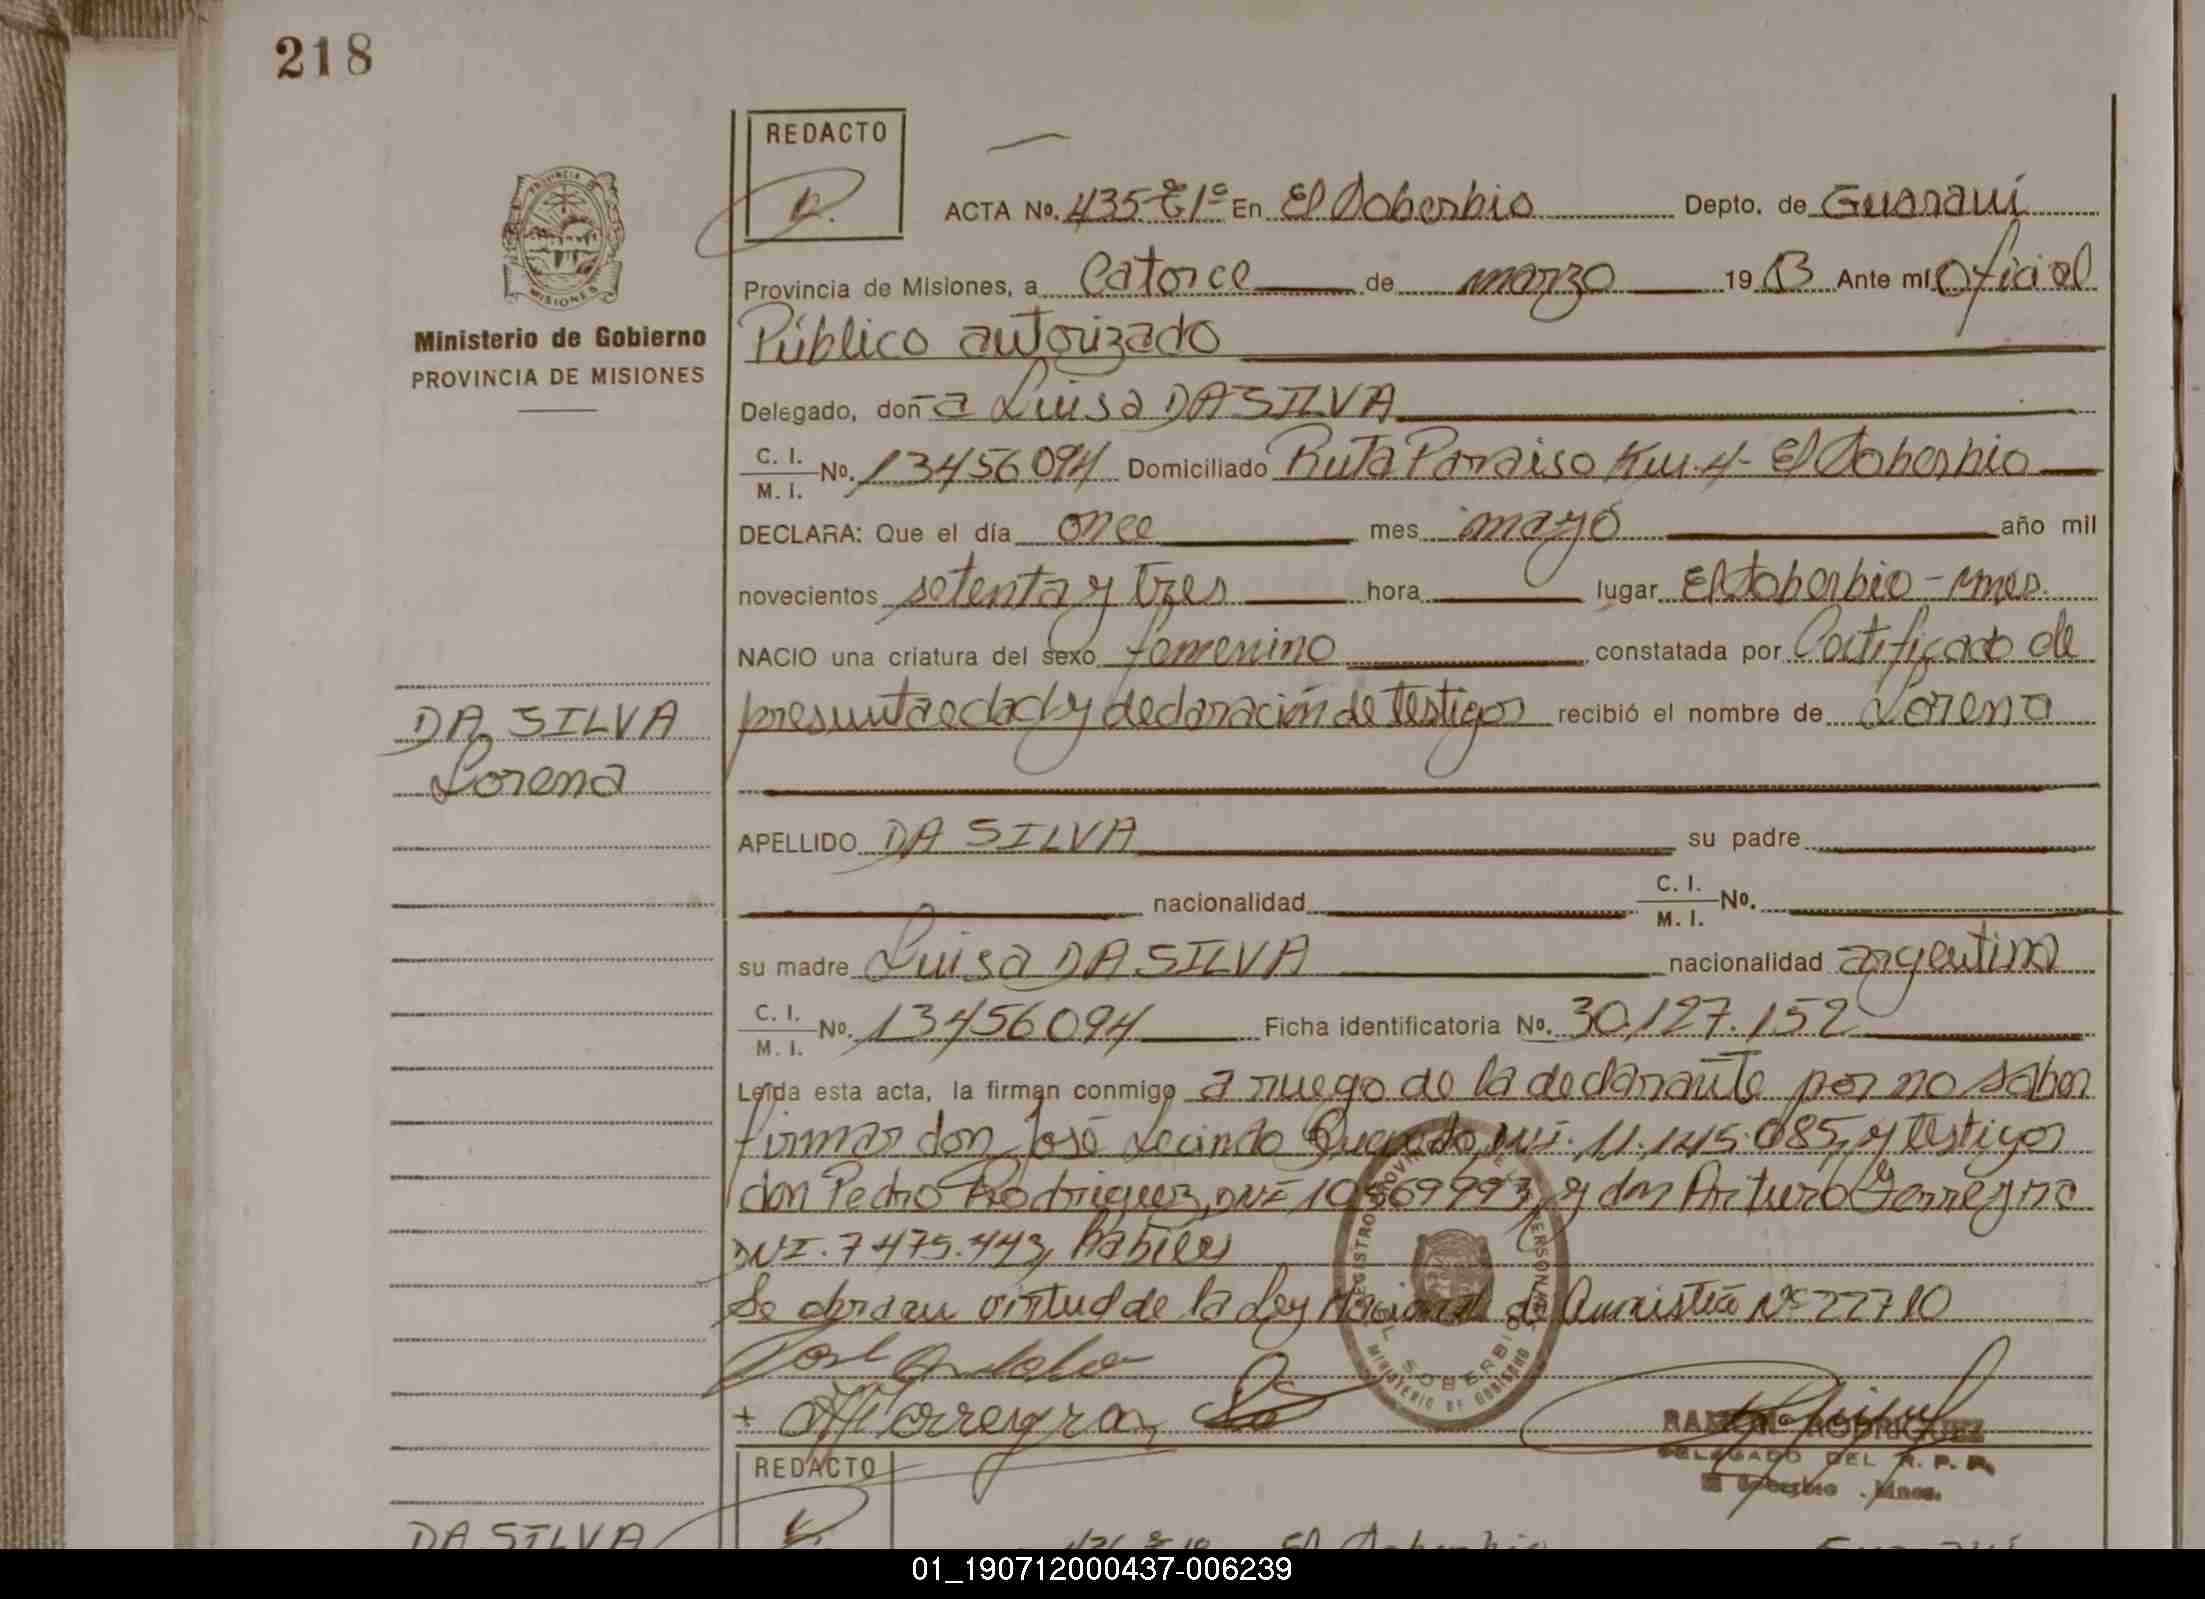 218
REDACTO
ACTA No. 435-Tº1º En El Soberbio Depto. de Guaraní
Provincia de Misiones, a Catorce de marzo 1983 Ante mí Oficial
Público autorizado
Ministerio de Gobierno
PROVINCIA DE MISIONES
Delegado, don-a Luisa DA SILVA
C. I. M. I. No. 13456094 Domiciliado Ruta Paraiso Km. 4- El Soberbio
DECLARA: Que el día once mes mayo año mil
novecientos setenta y tres hora lugar El Soberbio - Mnes.
NACIO una criatura del sexo femenino constatada por Certificado de
presunta edad y declaración de testigos recibió el nombre de Lorena
DA SILVA
Lorena
APELLIDO DA SILVA su padre
nacionalidad C. I. M. I. No.
su madre Luisa DA SILVA nacionalidad argentina
C. I. M. I. No. 13456094 Ficha identificatoria No. 30.127.152
Leída esta acta, la firman conmigo a ruego de la declarante por no saber
firmar don José DNI. 11.145.085, y testigos
don Pedro Rodriguez, DNI 10.569993, y don Arturo
DNI. 7475.443, hábiles
Se obra en virtud de la Ley Nacional de Amnistía Nº 22710
REGISTRO PROVINCIAL DE LAS PERSONAS
EL SOBERBIO
MINISTERIO DE GOBIERNO
RODRIGUEZ
DELEGADO DEL R. P. P.
El Soberbio - Mnes.
REDACTO
DA SILVA
El Soberbio
01_190712000437-006239